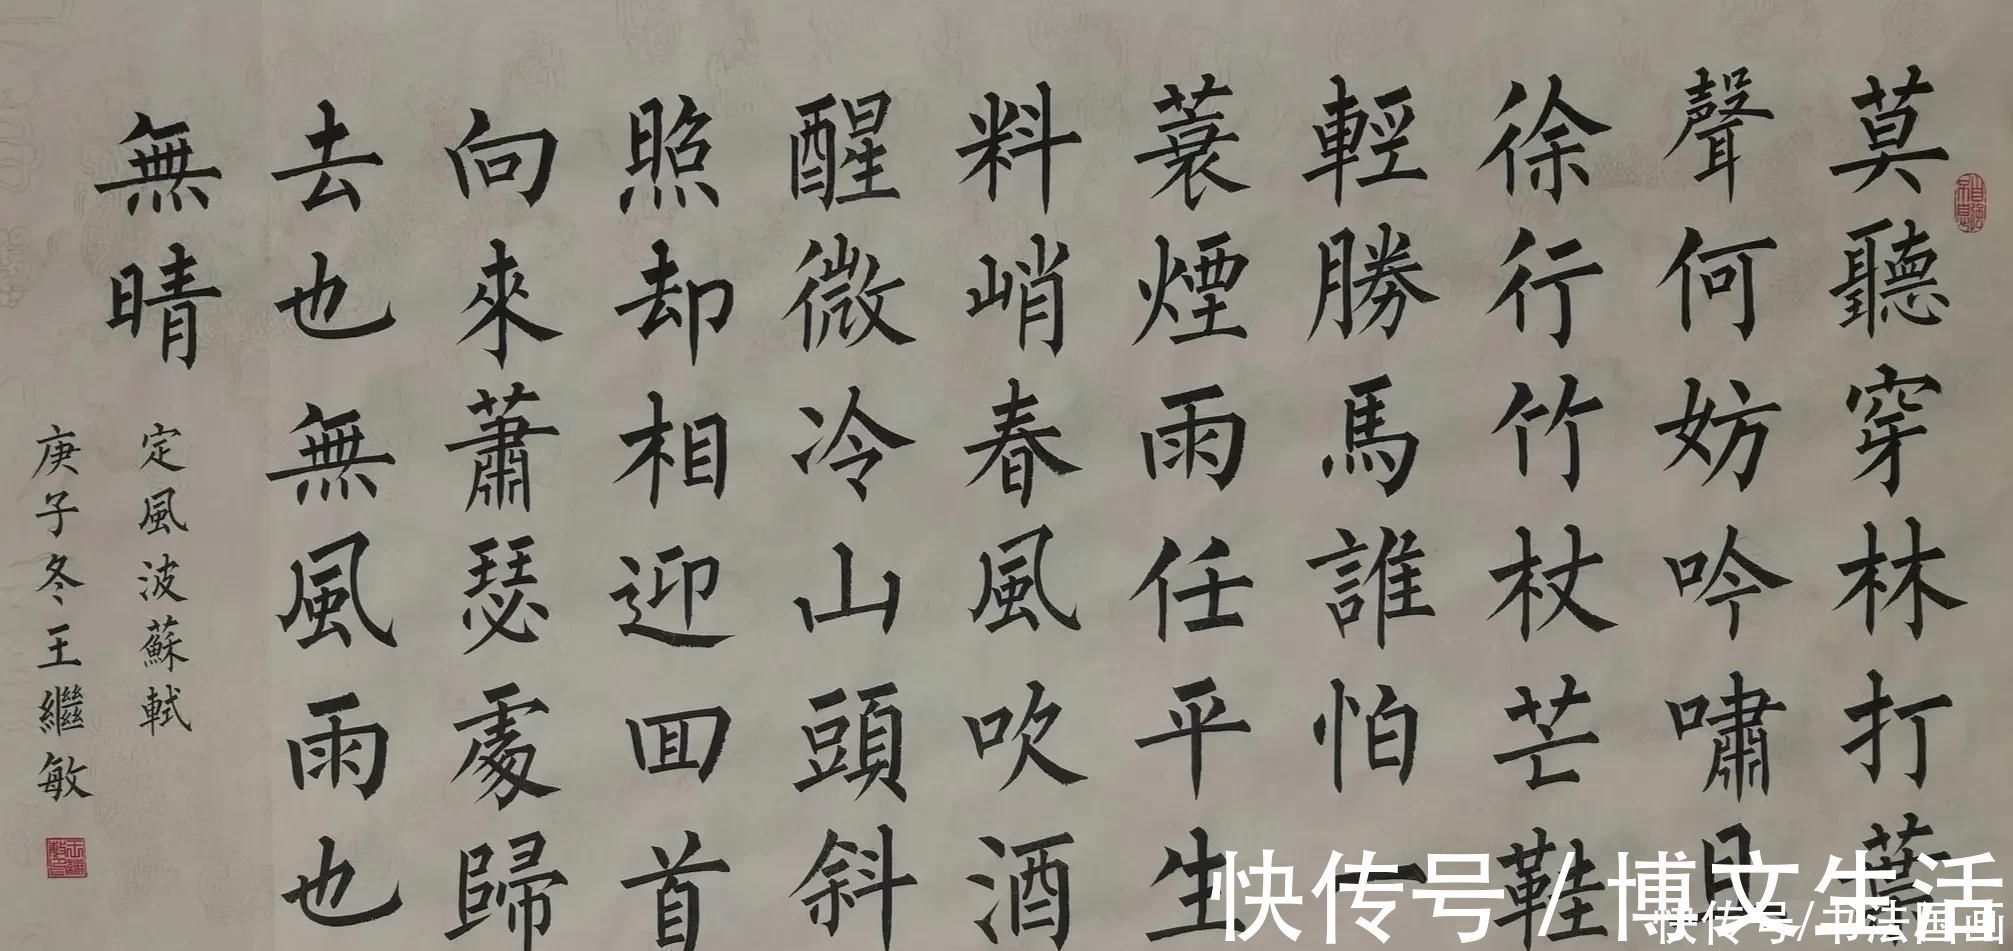 莫聽穿林打葉
聲何妨吟嘯且
徐行竹杖芒鞋
輕勝馬誰怕一
蓑煙雨任平生
料峭春風吹酒
醒微冷山頭斜
照却相迎回首
向來蕭瑟處歸
去也無風雨也
無晴
定風波蘇軾
庚子冬王繼敏
快传号/博文生活
快传号/书法国画